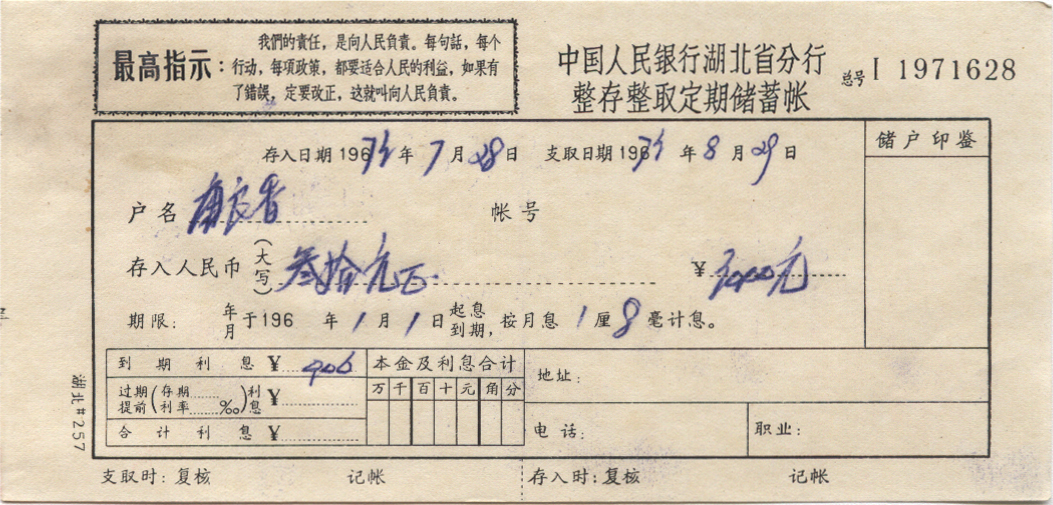 最高指示：
我們的責任，是向人民負責。每句話，每个
行动，每項政策，都要适合人民的利益，如果有
了錯誤，定要改正，这就叫向人民負責。
中国人民银行湖北省分行
整存整取定期储蓄帐
总号 I 1971628
存入日期196 年7月28日 支取日期196 年8月29日
储户印鉴
户名 帐号
存入人民币(大写) 叁拾元正. ¥ 3000元
期限: 年月于196 年1月1日起息到期,按月息1厘8毫计息。
到期利息 ¥ 906
本金及利息合计
过期提前(存期......利率......‰)利息 ¥
万千百十元角分
合计利息 ¥
地址:
电话:
职业:
湖北#257
支取时:复核 记帐 存入时:复核 记帐